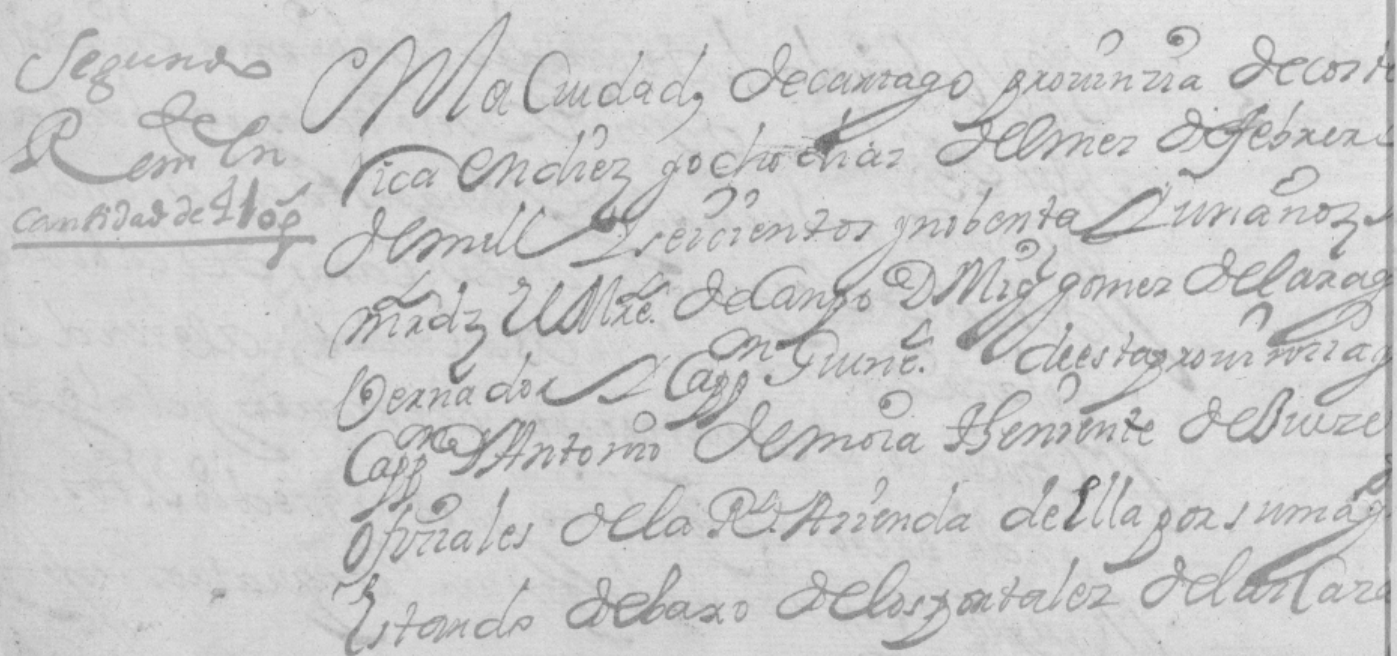 Segundo
de
Rem en
cantidad de 110 p
En la Ciudad de cartago provinzia de costa
rica en diez y ocho dias del mes de febrero
de mill y seiscientos y nobenta y un años
El Mre. de Canpo D Migl gomez de lara g
vernador y Capp n Gene. de esta provinzia y
Capp n D Antonio de mora theniente de Jueze
ofiziales de la Rl. hazienda de ella por su mag
Estando debaxo de los portalez de las Cara